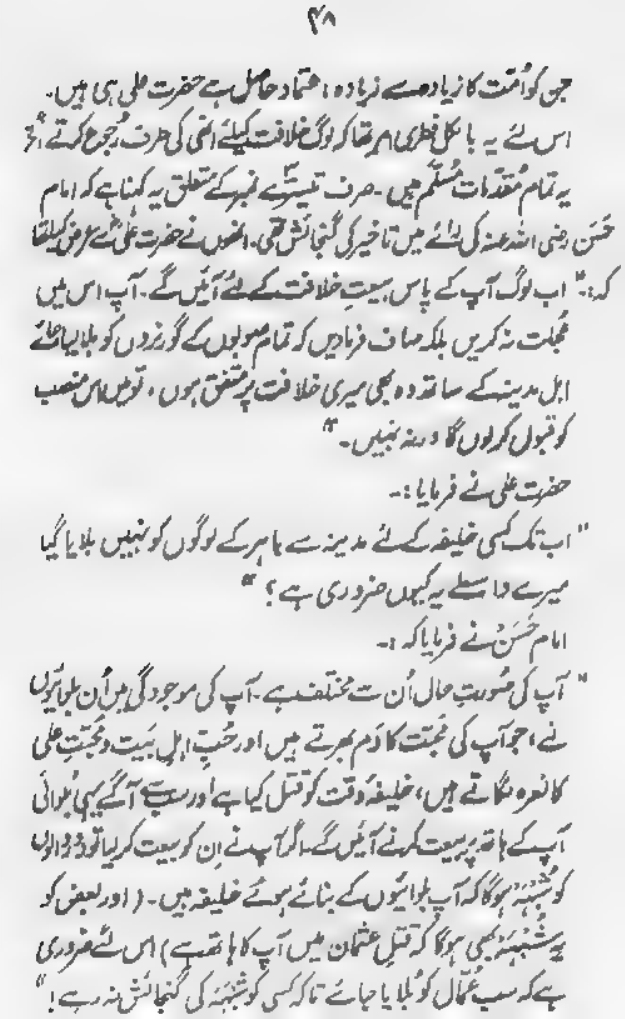 ۴۸
جن کو اُمت کا زیادہ سے زیادہ اعتماد حاصل ہے حضرت علی ہی ہیں۔
اس لئے یہ بالکل فطری امر تھا کہ لوگ خلافت کیلئے انہی کی طرف رُجوع کرتے الخ
یہ تمام مُقدّمات مُسلّم ہیں۔ صرف تیسرے نمبر کے متعلق یہ کہنا ہے کہ امام
حَسَن رضی اللہ عنہ کی رائے میں تاخیر کی گُنجائش تھی۔ انھوں نے حضرت علیؓ سے عرض کیا تھا
کہ:۔ "اب لوگ آپ کے پاس بیعتِ خلافت کے لئے آئیں گے۔ آپ اس میں
عُجلت نہ کریں بلکہ صاف فرمادیں کہ تمام صوبوں کے گورنروں کو بلا لیا جائے
اہل مدینہ کے ساتھ وہ بھی میری خلافت پر متفق ہوں، تو میں اس منصب
کو قبول کرلوں گا ورنہ نہیں۔"
حضرت علی نے فرمایا:۔
"اب تک کسی خلیفہ کے لئے مدینہ سے باہر کے لوگوں کو نہیں بلایا گیا
میرے واسطے یہ کیوں ضروری ہے؟"
امام حَسَنؓ نے فرمایا کہ:۔
"آپ کی صُورتِ حال اُن سے مختلف ہے۔ آپ کی موجودگی میں اُن بلوائیوں
نے، جو آپ کی مُحبّت کا دَم بھرتے ہیں اور حُبِّ اہلِ بَیت و مُحبّتِ علی
کا نعرہ لگاتے ہیں، خلیفۂ وقت کو قتل کیا ہے اور سب سے آگے یہی بُلوائی
آپ کے ہاتھ پر بیعت کرنے آئیں گے۔ اگر آپ نے ان کو بیعت کرلیا تو دُور والوں
کو شُبہَہ ہوگا کہ آپ بلوائیوں کے بنائے ہوئے خلیفہ ہیں۔ (اور بعض کو
یہ شُبہَہ بھی ہوگا کہ قتلِ عثمان میں آپ کا ہاتھ ہے) اس لئے ضروری
ہے کہ سب عُمّال کو بُلایا جائے تاکہ کسی کو شُبہَہ کی گُنجائش نہ رہے!"